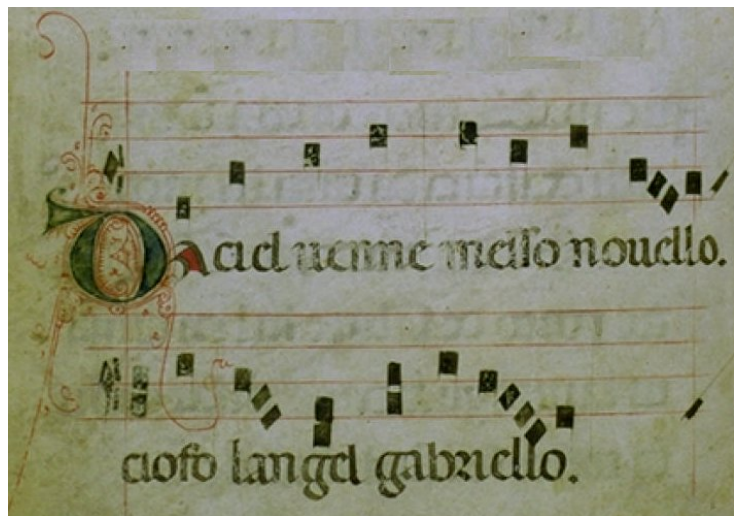 DA ciel uenne messo nouello.
ciofo langel gabriello.